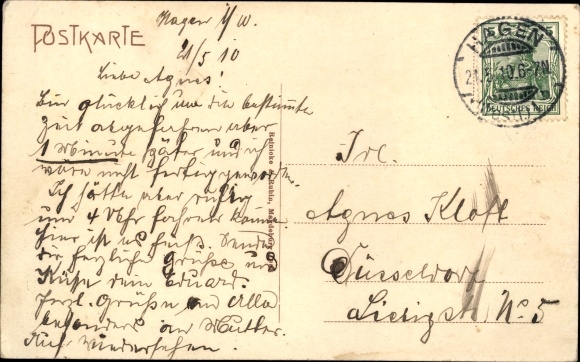 POSTKARTE
Hagen i/W.
21/5 10
Liebe Agnes!
Bin glücklich um die bestimmte
Zeit abgefahren aber
1 Minute später und ich
wäre nicht fertig geworden.
Ich hätte aber ruhig
um 4 Uhr fahren können
Hier ist es heiß. Sende
die herzliche Grüße und
Küsse dem Eduard.
Herzl. Grüße an Alle
besonders an Mutter.
Auf Wiedersehen.
Reinicke & Rubin, Magdeburg
HAGEN
21.5.10.6-7N.
(WESTF.)
DEUTSCHES REICH
Frl.
Agnes Kloft
Düsseldorf
Liebigstr No 5